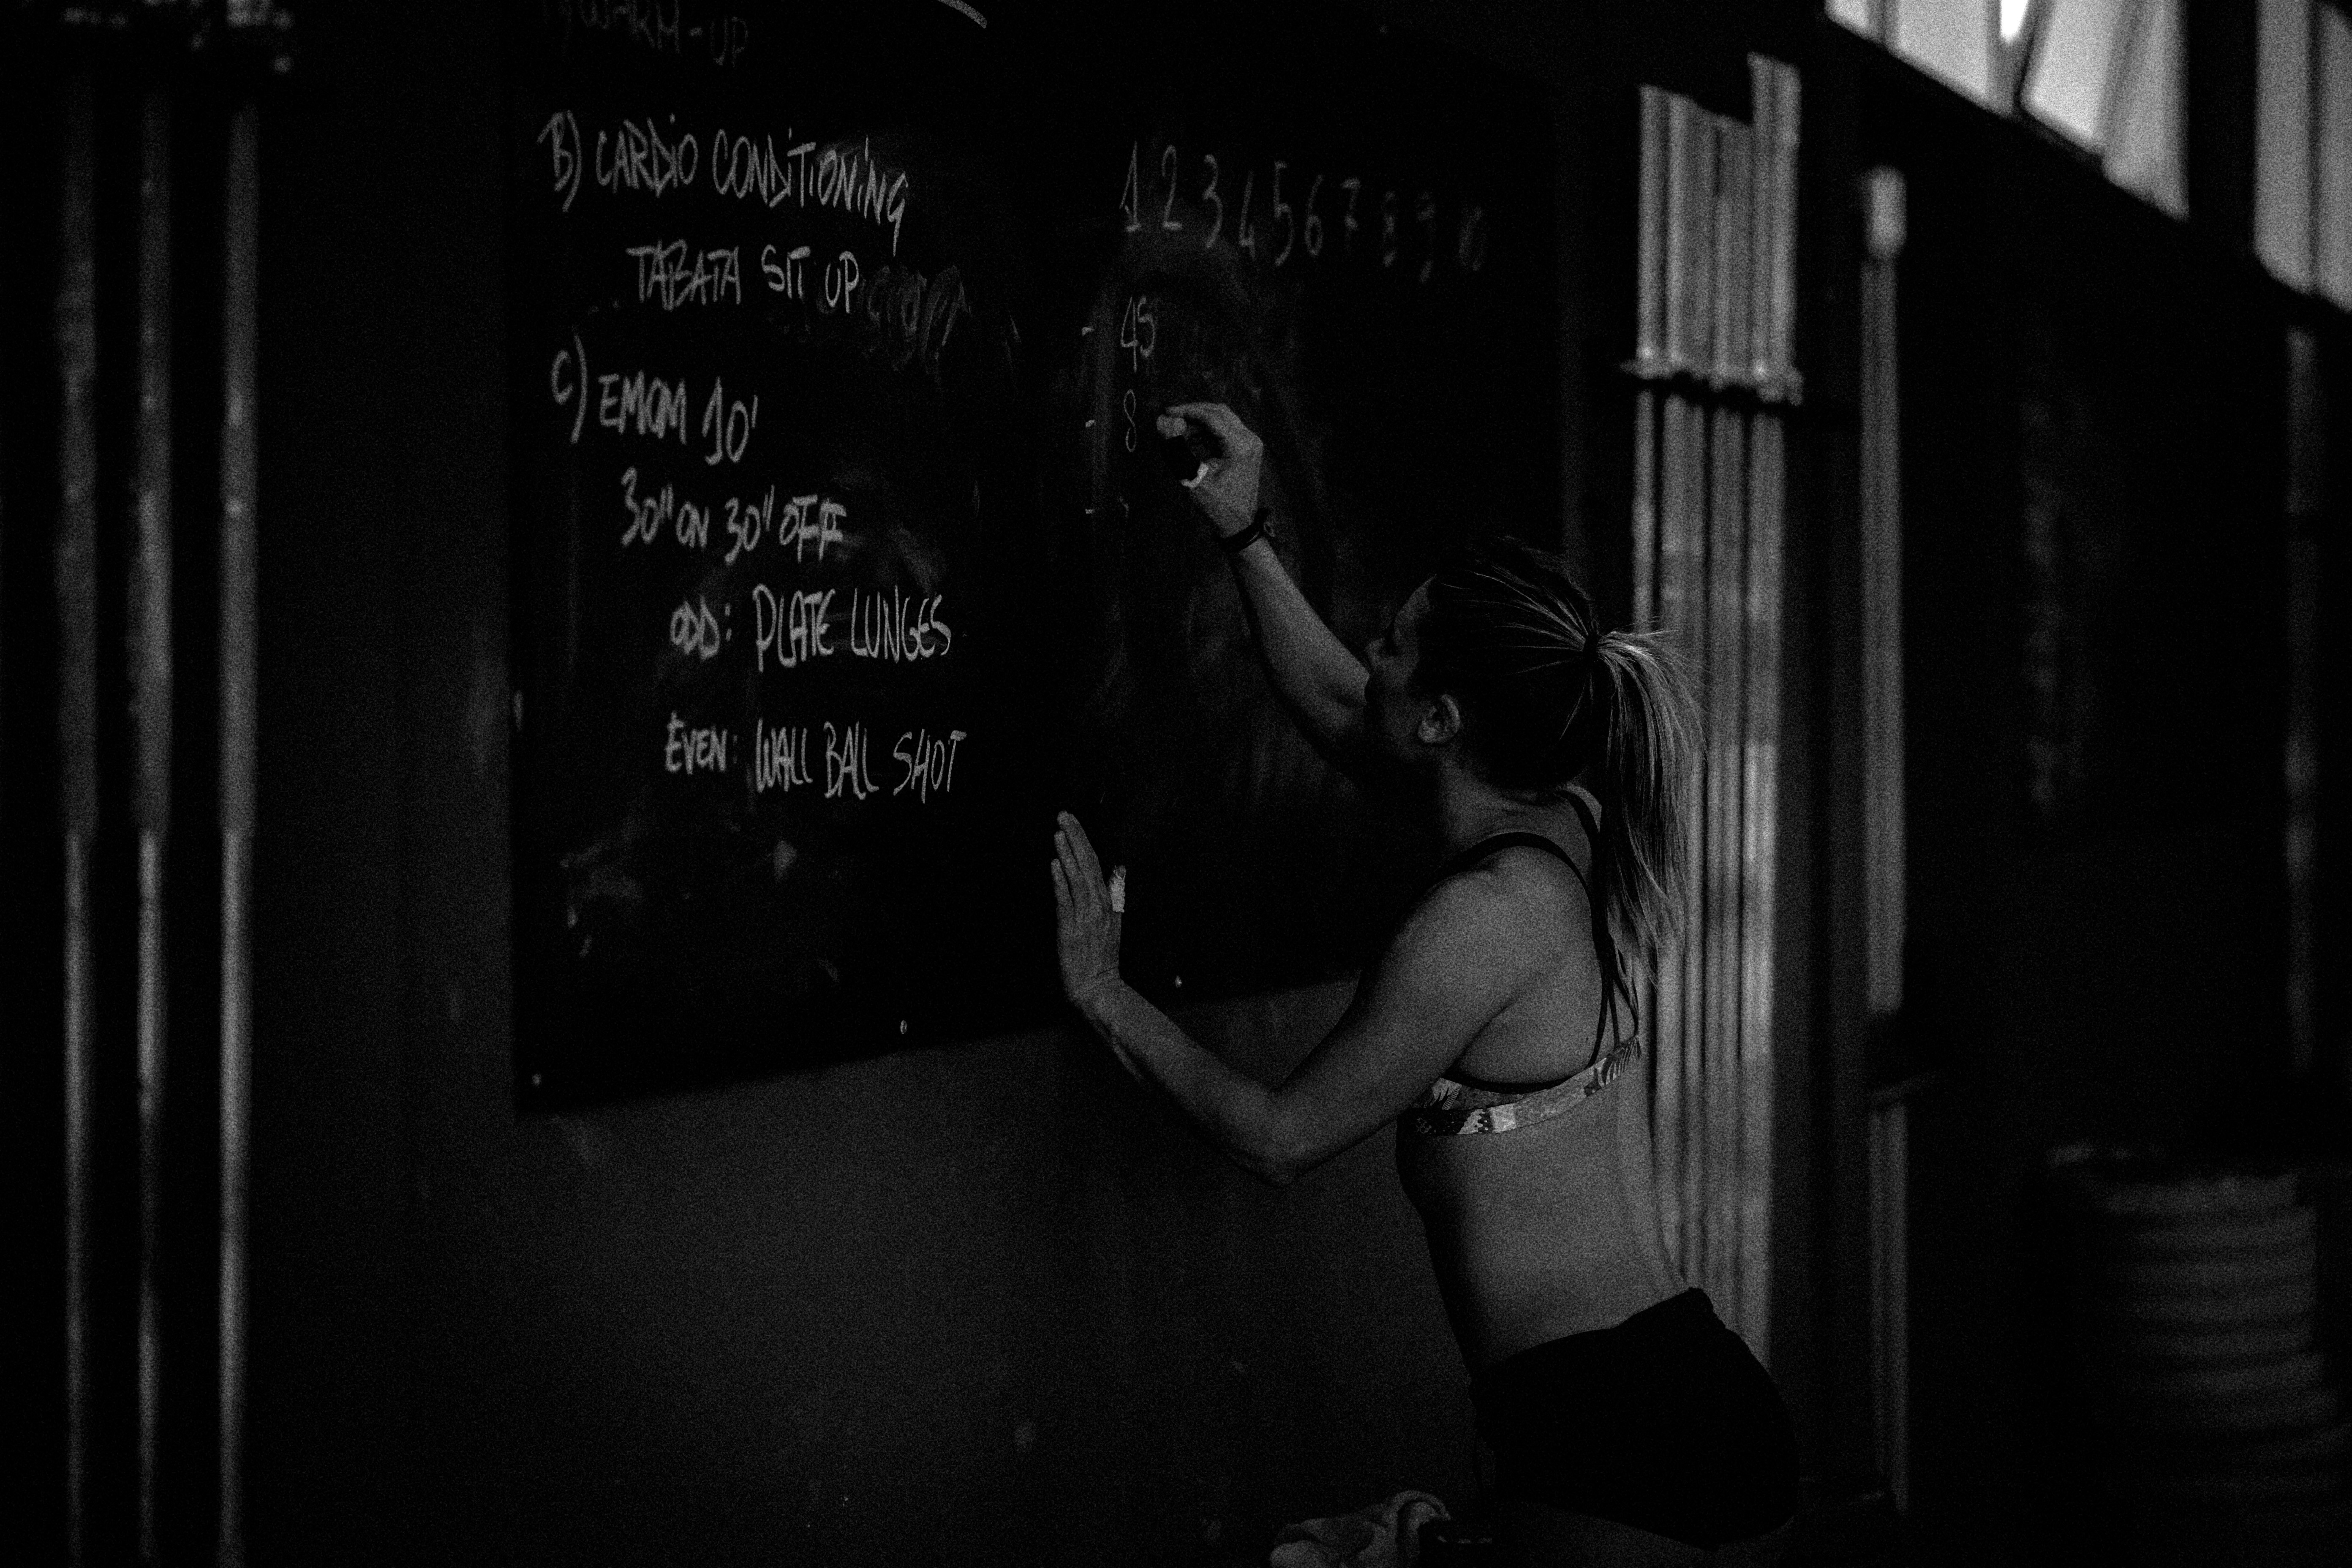 WARM-UP
B) CARDIO CONDITIONING
TABATA SIT UP
C) EMOM 10'
30" ON 30" OFF
ODD: PLATE LUNGES
EVEN: WALL BALL SHOT
1 2 3 4 5 6 7 8 9 10
- 45
- 8
-